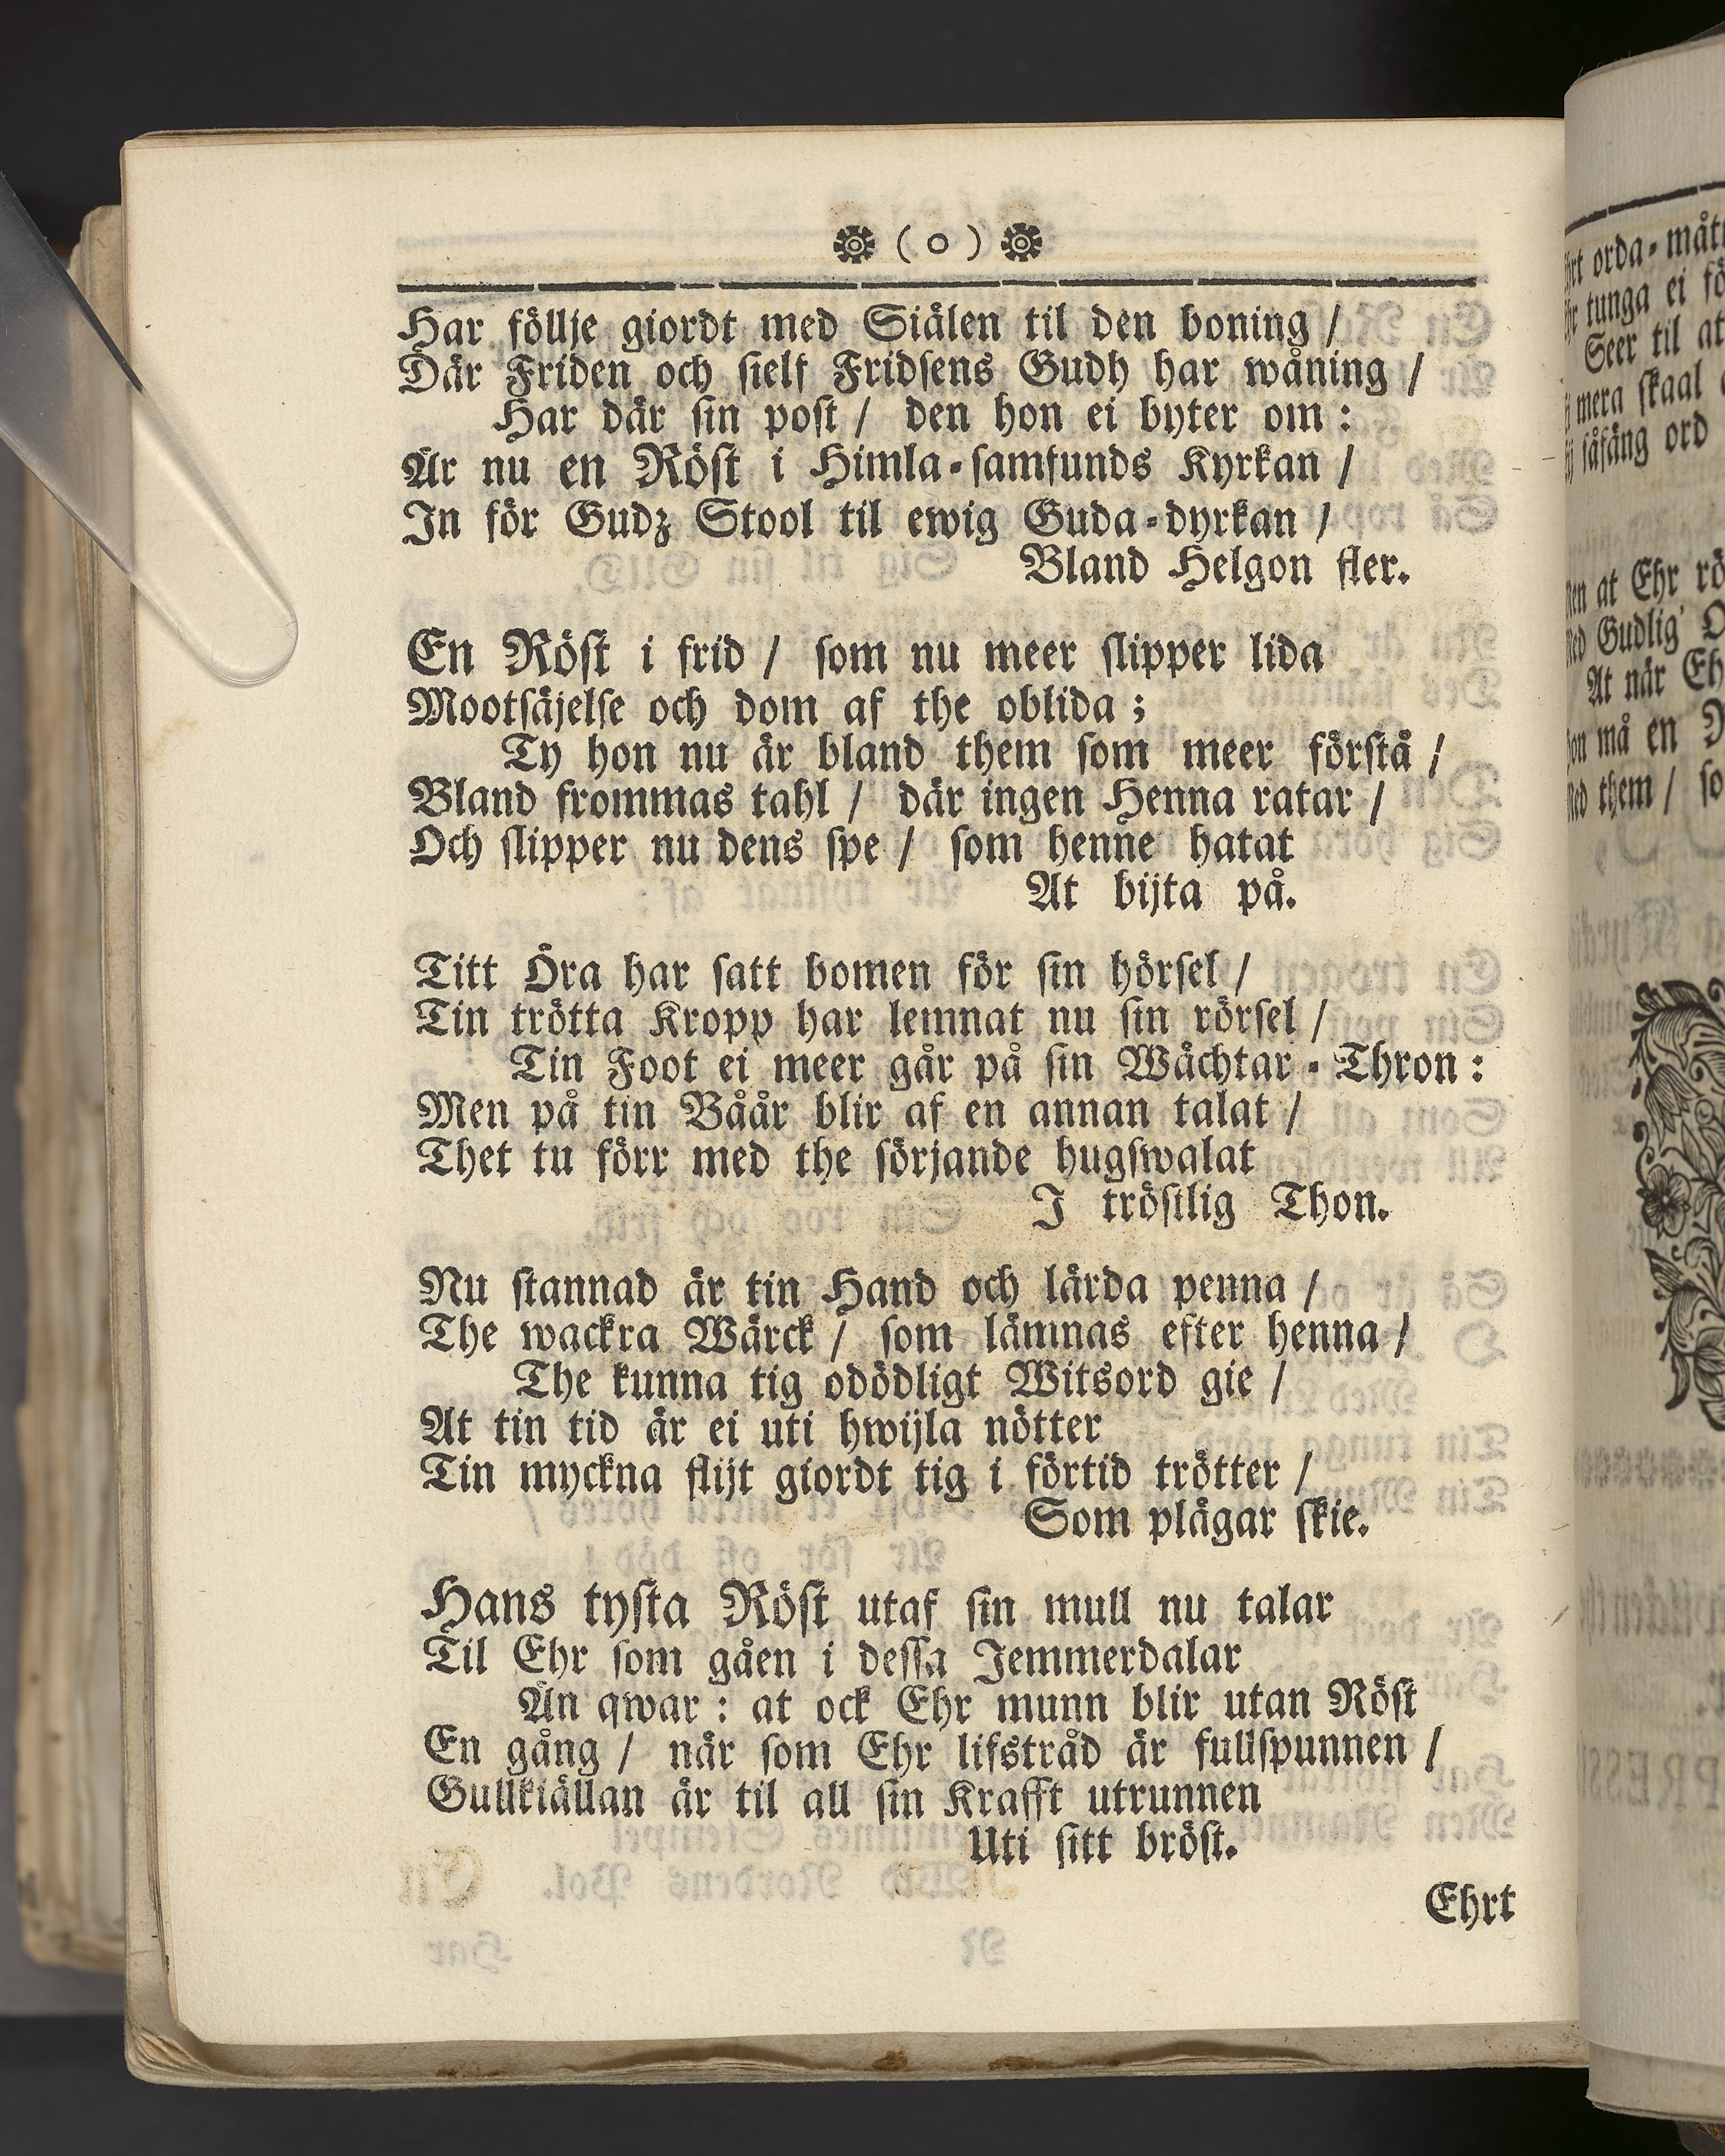 ❁ ( o ) ❁
Har föllje giordt med Siälen til den boning /
Där Friden och sielf Fridsens Gudh har wåning /
Har där sin post / den hon ei byter om :
Är nu en Röst i Himla-samfunds Kyrkan /
In för Gudz Stool til ewig Guda-dyrkan /
Bland Helgon fler.
En Röst i frid / som nu meer slipper lida
Mootsäjelse och dom af the oblida ;
Ty hon nu är bland them som meer förstå /
Bland frommas tahl / där ingen Henna ratar /
Och slipper nu dens spe / som henne hatat
At bijta på.
Titt Öra har satt bomen för sin hörsel /
Tin trötta Kropp har lemnat nu sin rörsel /
Tin Foot ei meer går på sin Wächtar-Thron :
Men på tin Båår blir af en annan talat /
Thet tu förr med the sörjande hugswalat
I tröstlig Thon.
Nu stannad är tin Hand och lärda penna /
The wackra Wärck / som lämnas efter henna /
The kunna tig odödligt Witsord gie /
At tin tid är ei uti hwijla nötter
Tin myckna flijt giordt tig i förtid trötter /
Som plägar skie.
Hans tysta Röst utaf sin mull nu talar
Til Ehr som gåen i dessa Jemmerdalar
Än qwar : at ock Ehr munn blir utan Röst
En gång / när som Ehr lifstråd är fullspunnen /
Gullkiällan är til all sin Krafft utrunnen
Uti sitt bröst.
Ehrt
orda-mått
tunga ei
Seer til at
mera skaal
såfäng ord
at Ehr
Gudlig
At när
må en
them /